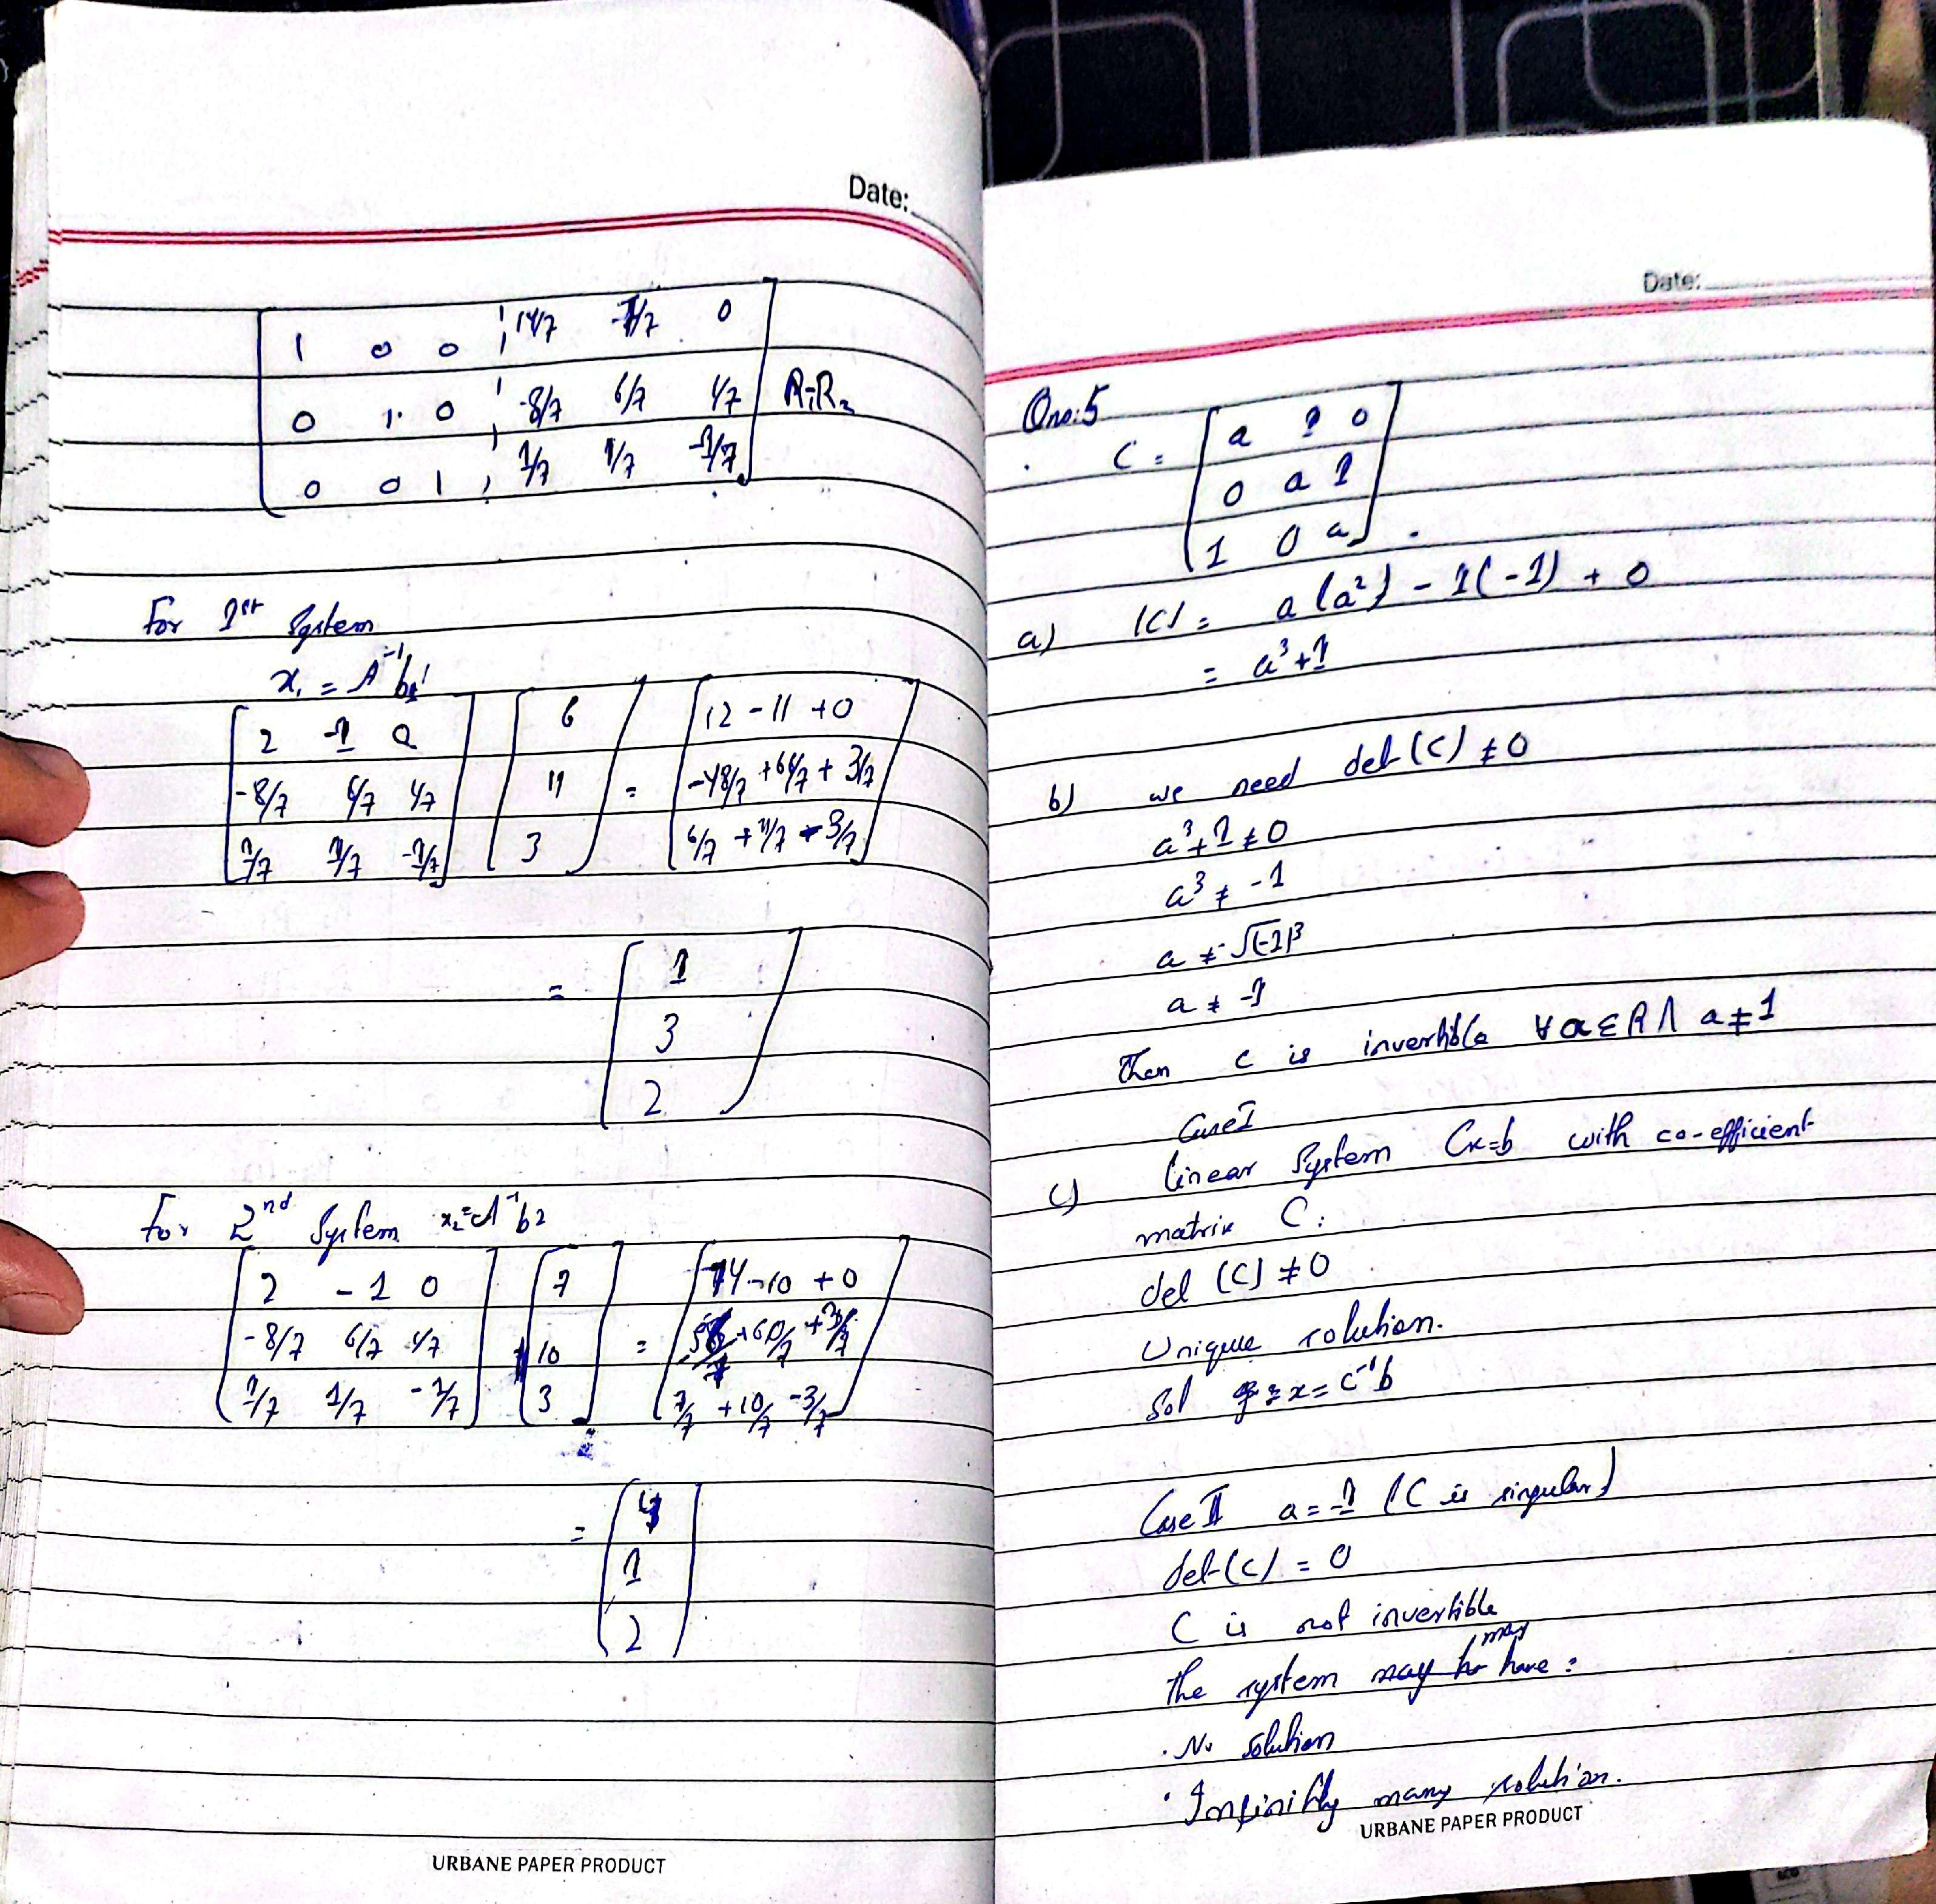 Date:
1 0 0 ¦ 14/7 -7/7 0
0 1 0 ¦ -8/7 6/7 1/7 R₁-R₂
0 0 1 ¦ 1/7 1/7 -1/7
For 1st System
x₁ = A⁻¹b₁
[2 -1 0] [6] = [12 - 11 + 0]
[-8/7 6/7 1/7] [11] [-48/7 + 66/7 + 3/7]
[1/7 1/7 -1/7] [3] [6/7 + 11/7 - 3/7]
= [1]
[3]
[2]
For 2nd System x₂=A⁻¹b2
[2 -1 0] [7] = [14 - 10 + 0]
[-8/7 6/7 1/7] [10] [-56/7 + 60/7 + 3/7]
[1/7 1/7 -1/7] [3] [7/7 + 10/7 - 3/7]
= [4]
[1]
[2]
URBANE PAPER PRODUCT
Date:
Qno:5
C = [a 1 0]
[0 a 1]
[1 0 a]
a) |C| = a(a²) - 1(-1) + 0
= a³+1
b) we need det(C) ≠ 0
a³+1 ≠ 0
a³ ≠ -1
a ≠ √(-1)³
a ≠ -1
Then C is invertible ∀ a ∈ R ∧ a ≠ 1
Case I
c) linear System Cx=b with co-efficient
matrix C:
det (C) ≠ 0
Unique solution.
Sol x = C⁻¹b
Case II a = -1 (C is singular)
det(C) = 0
C is not invertible
the system may have:
· No solution
· Infinitly many solution.
URBANE PAPER PRODUCT